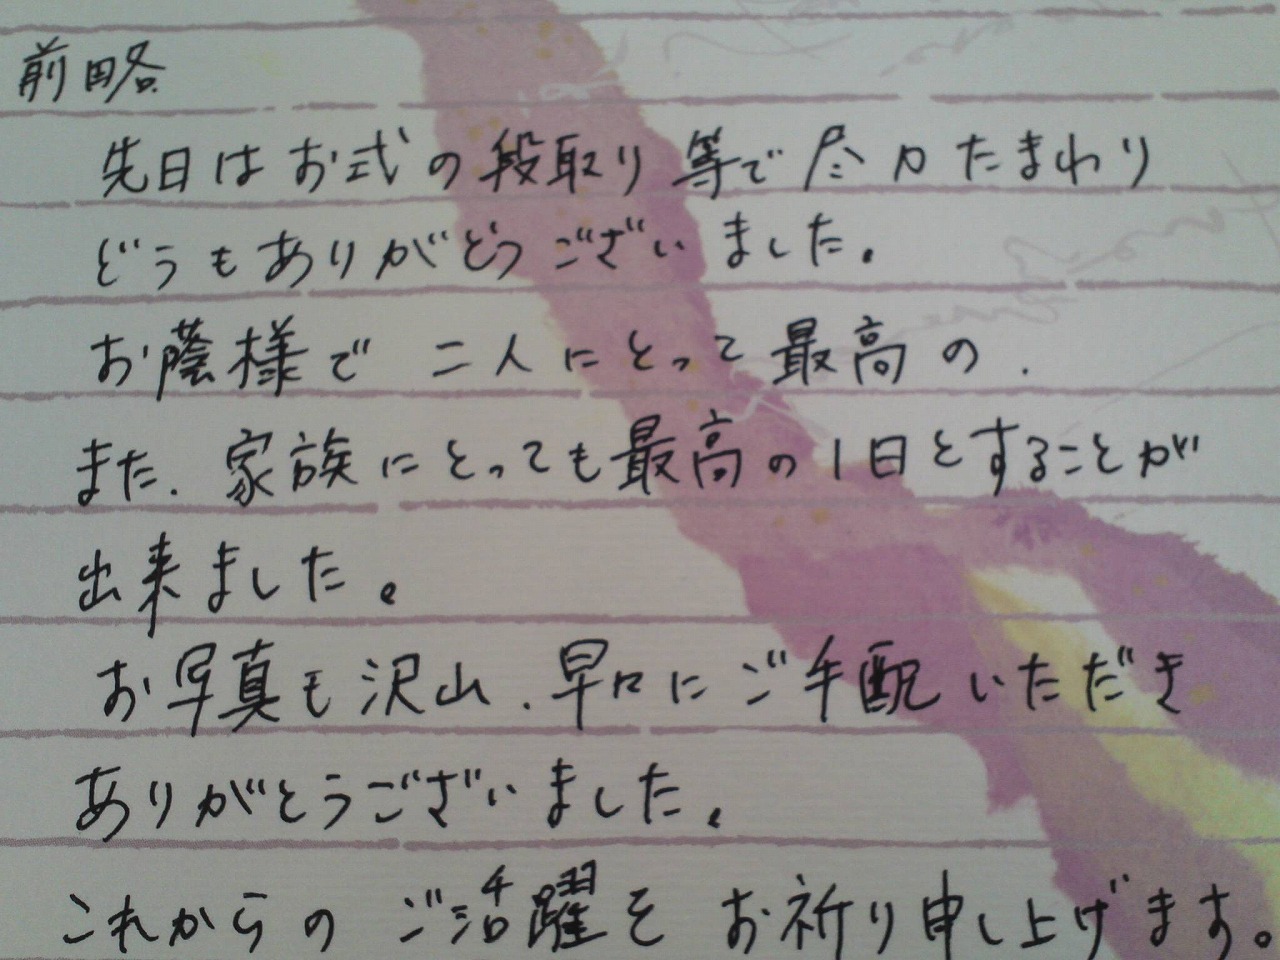 前略
先日はお式の段取り等で尽力たまわり
どうもありがどうございました。
お蔭様で 二人にとって最高の、
また、家族にとっても最高の1日とすることが
出来ました。
お写真も沢山、早々にご手配いただき
ありがとうございました。
これからのご活躍をお祈り申し上げます。